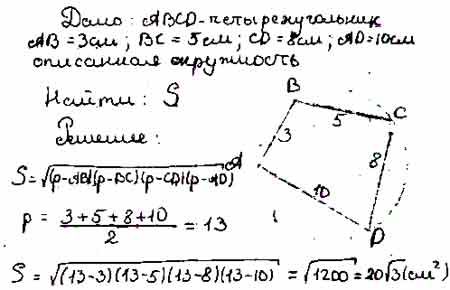 Дано: ABCD-четырехугольник
AB = 3см; BC = 5см; CD = 8см; AD = 10см
описанная окружность
Найти: S
Решение:
S = √(p-AB)(p-BC)(p-CD)(p-AD)
p = (3+5+8+10)/2 = 13
S = √(13-3)(13-5)(13-8)(13-10) = √1200 = 20√3 (см²)
B
C
5
3
A
8
10
D